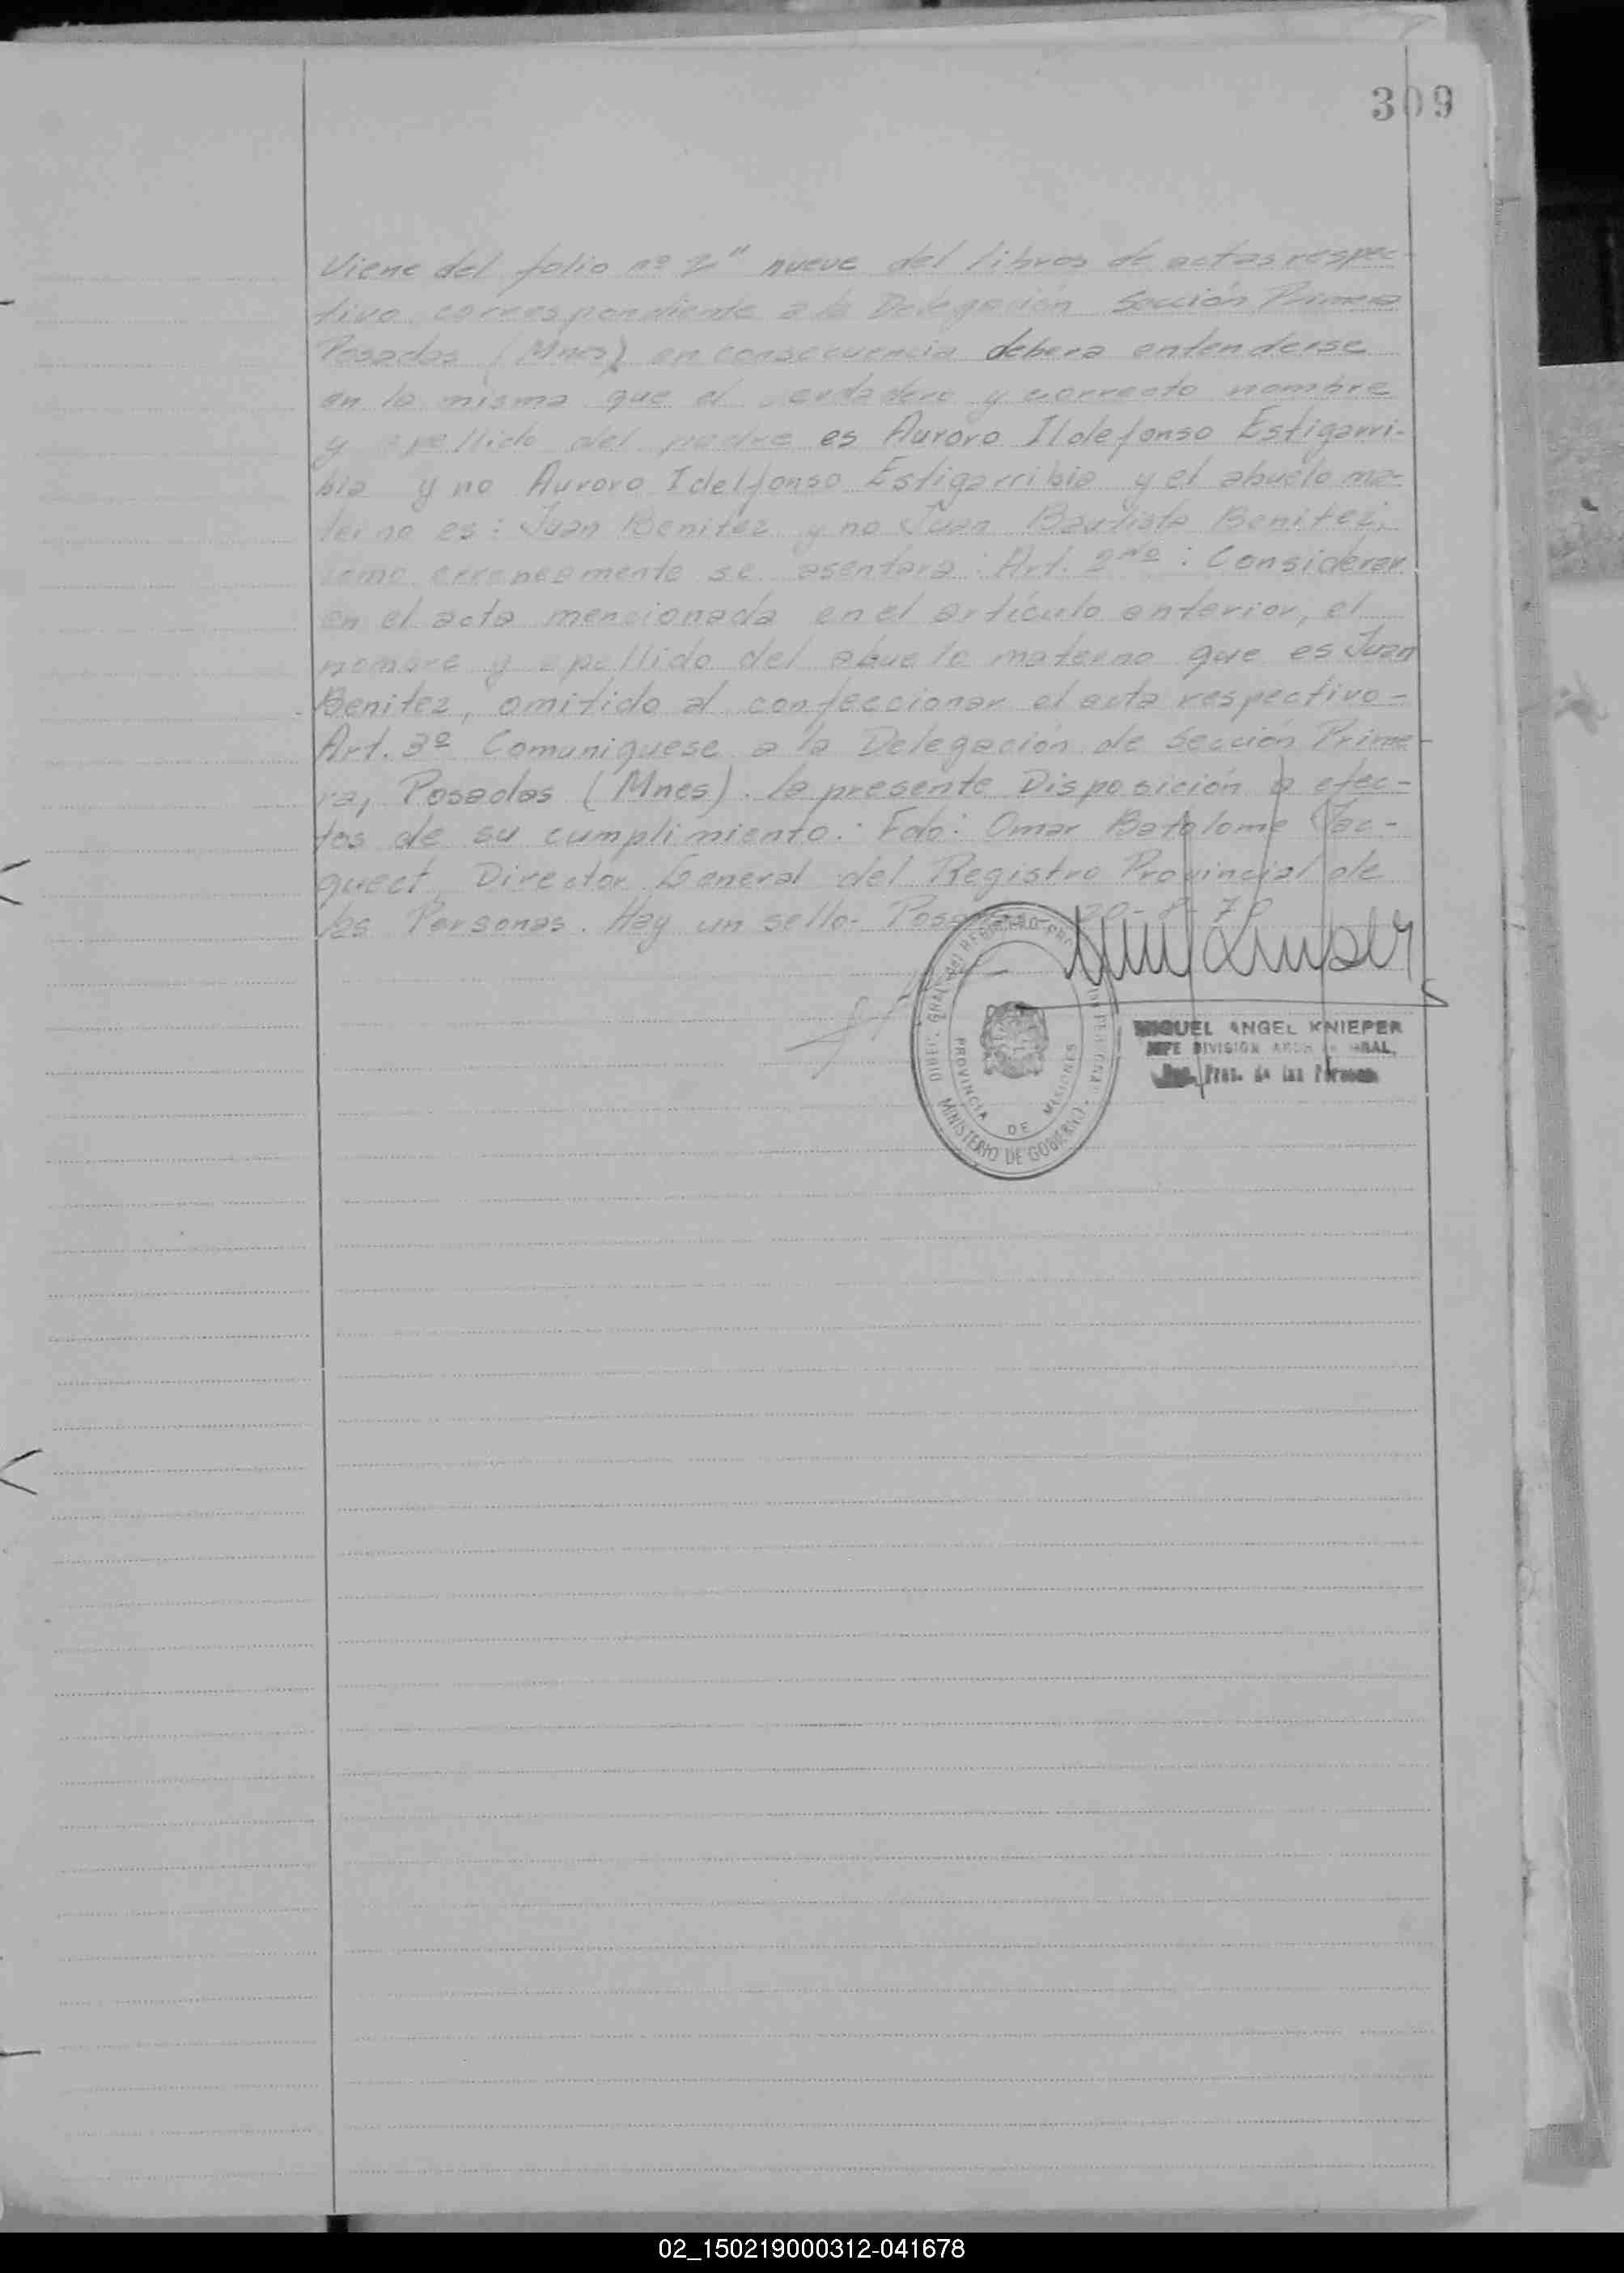 309
Viene del folio nº 2" nueve del libros de actas respec-
tivo correspondiente a la Delegación Sección Primera
Posadas (Mnes) en consecuencia debera entenderse
en la misma que el verdadero y correcto nombre
y apellido del padre es Auroro Ildefonso Estigarri-
bia y no Auroro Idelfonso Estigarribia y el abuelo ma-
terno es: Juan Benitez y no Juan Bautista Benitez,
como erroneamente se asentara. Art. 2do: Considerar
en el acta mencionada en el artículo anterior, el
nombre y apellido del abuelo materno que es Juan
Benitez, omitido al confeccionar el acta respectivo-
Art. 3º Comuniquese a la Delegación de Sección Prime-
ra, Posadas (Mnes). la presente Disposición a efec-
tos de su cumplimiento.: Fdo: Omar Batolome Jac-
quect, Director General del Registro Provincial de
las Personas. Hay un sello-
DIREC. GRAL. del REGISTRO
PROVINCIA DE MISIONES
MINISTERIO DE GOBIERNO
MIGUEL ANGEL KNIEPER
JEFE DIVISION GRAL.
de las Personas
02_150219000312-041678